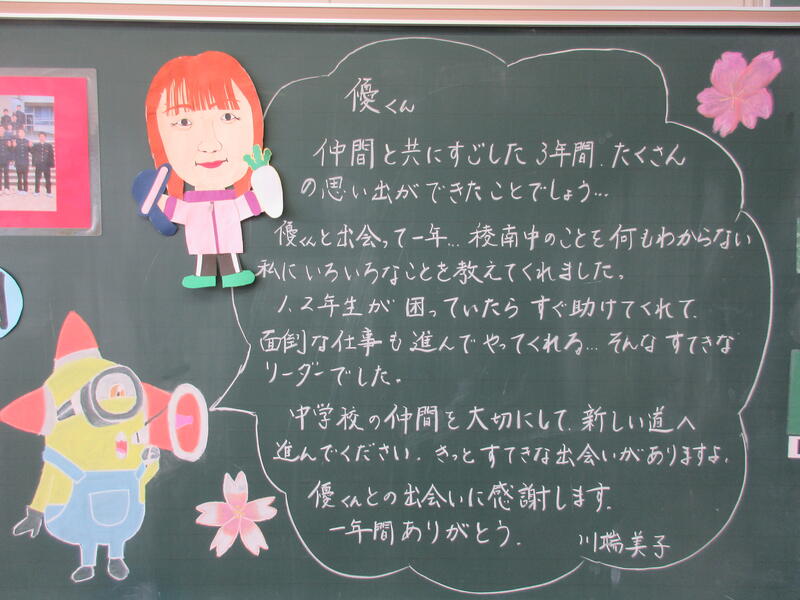 優くん
仲間と共にすごした3年間、たくさん
の思い出ができたことでしょう…
優くんと出会って一年…稜南中のことを何もわからない
私にいろいろなことを教えてくれました。
1、2年生が困っていたらすぐ助けてくれて、
面倒な仕事も進んでやってくれる…そんなすてきな
リーダーでした。
中学校の仲間を大切にして、新しい道へ
進んでください。きっとすてきな出会いがありますよ。
優くんとの出会いに感謝します。
一年間ありがとう。
川端美子